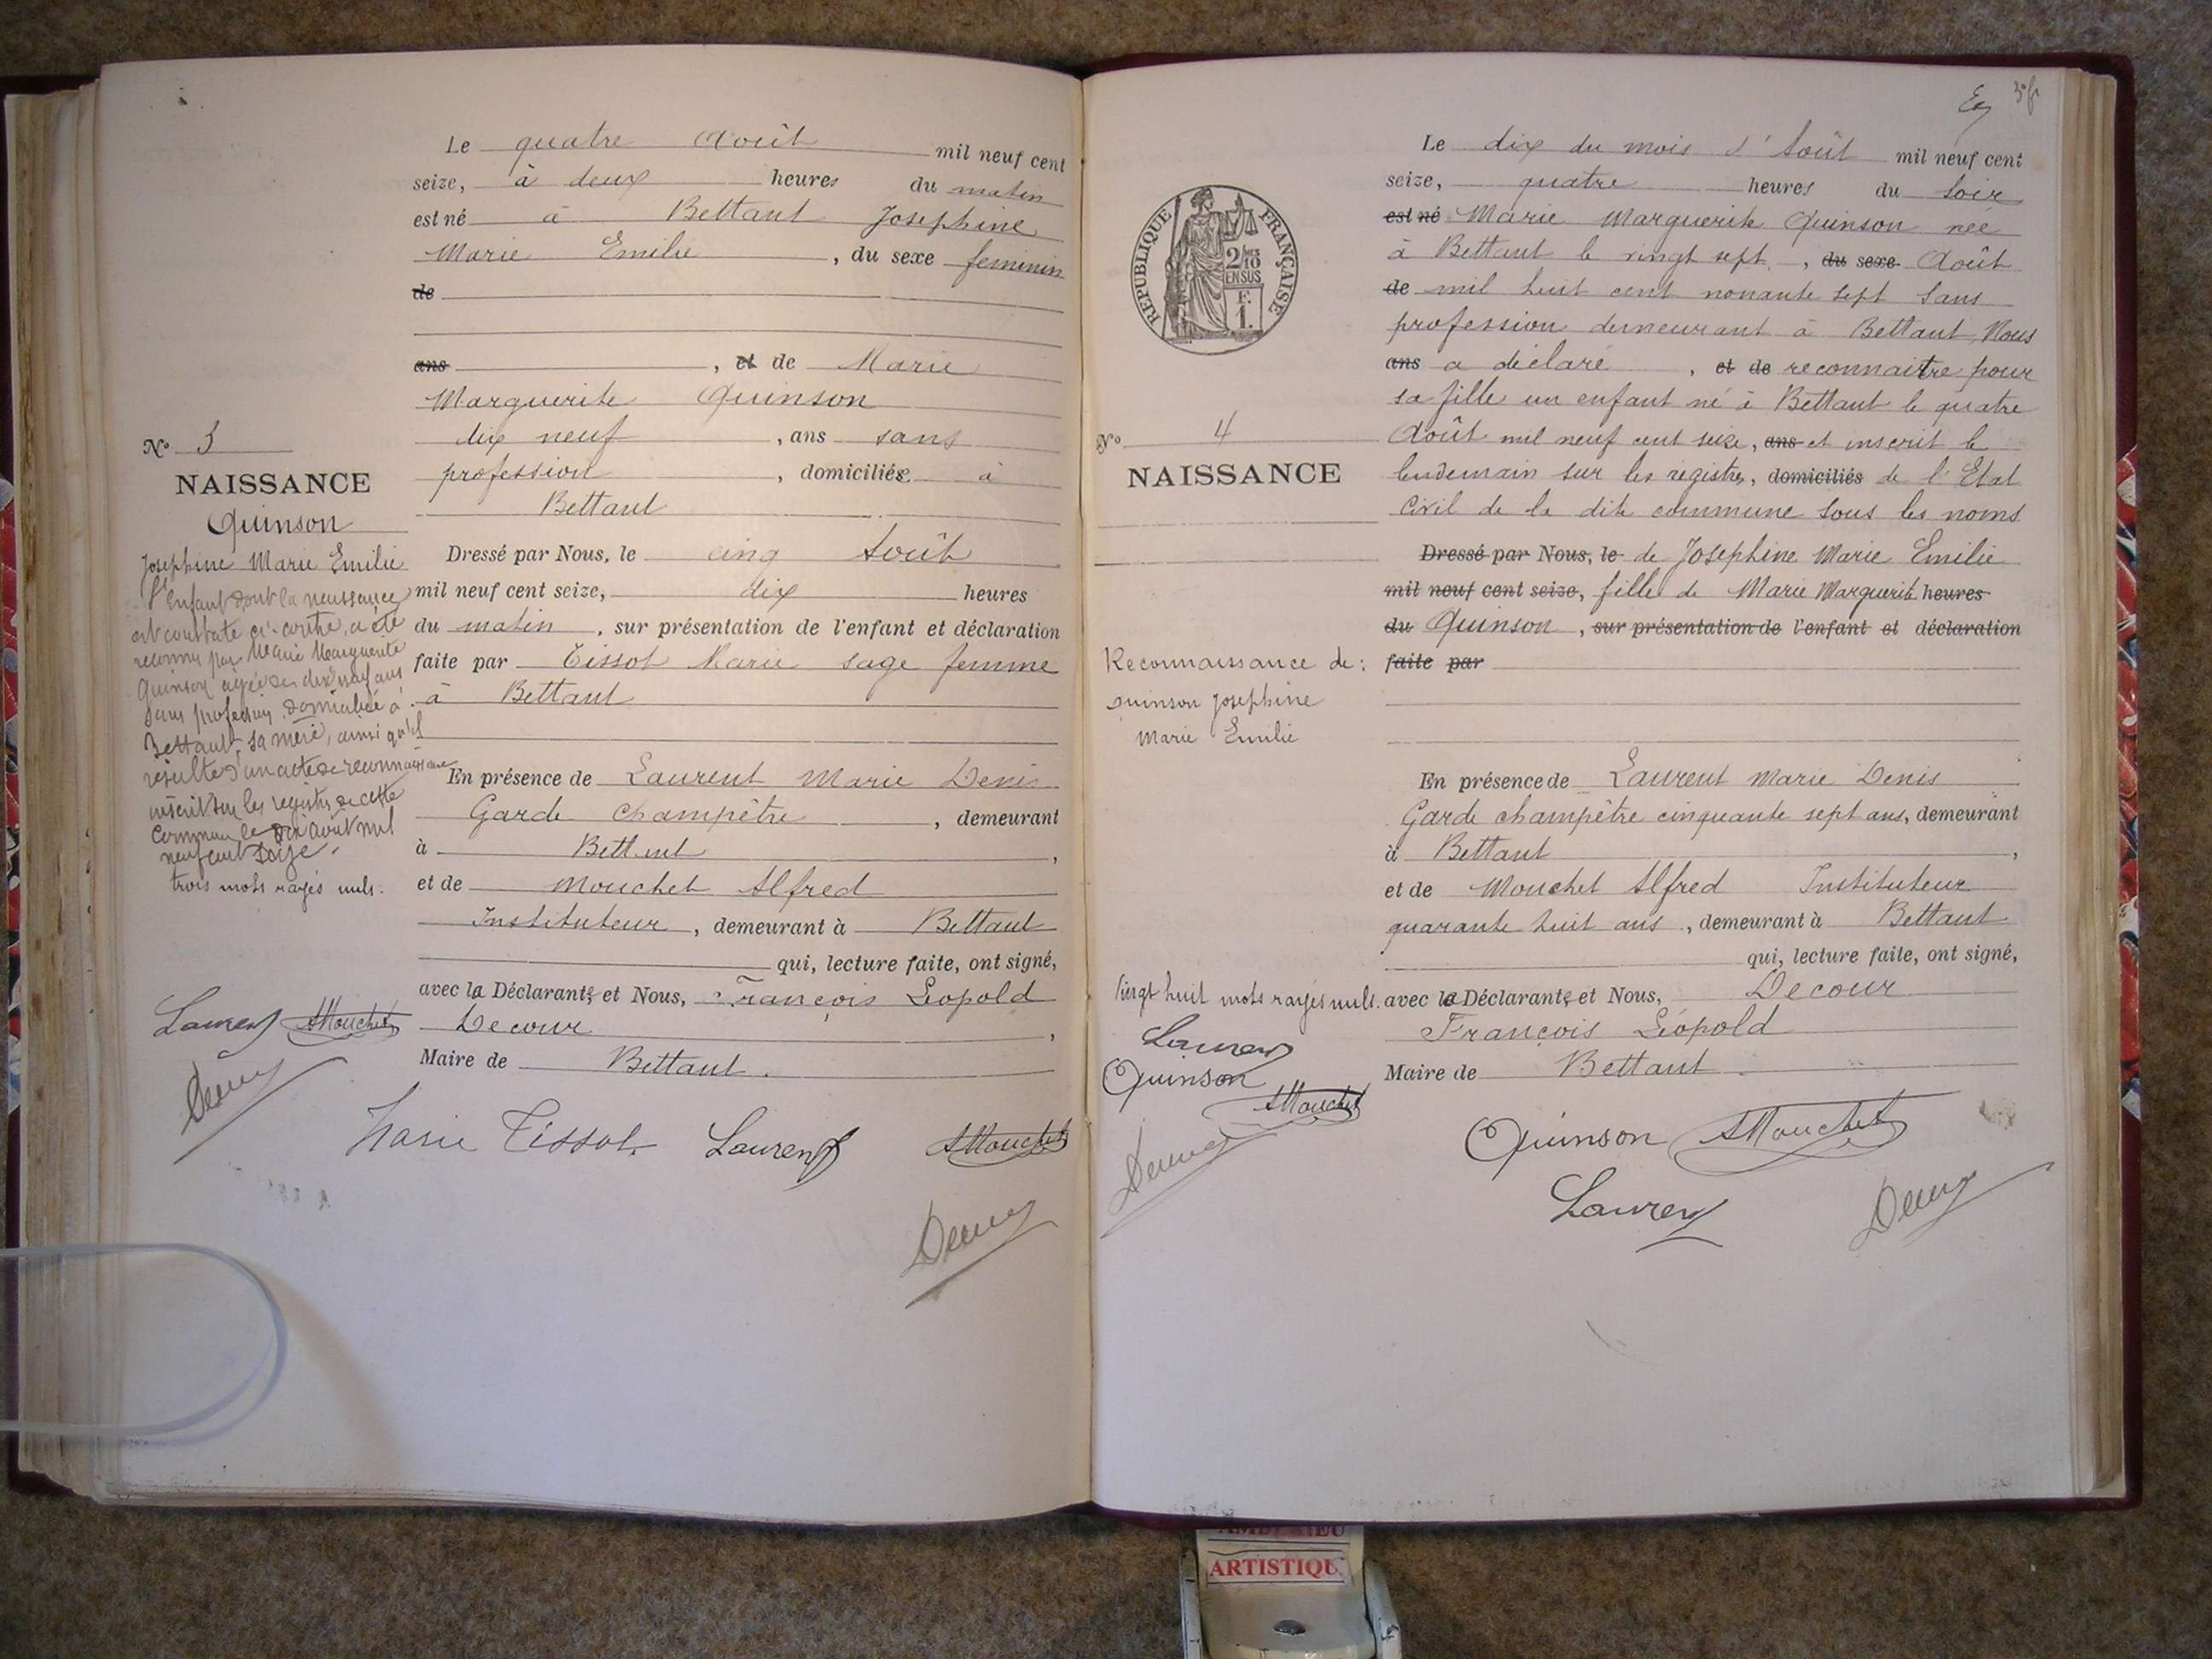 Le quatre Août mil neuf cent
seize, à deux heures du matin
est né à Bettant Josephine
Marie Emilie, du sexe feminin
de
ans, et de Marie
Marguerite Quinson
dix neuf, ans sans
profession, domiciliée à
Bettant
Dressé par Nous, le cinq Août
mil neuf cent seize, dix heures
du matin, sur présentation de l'enfant et déclaration
faite par Tissot Marie sage femme
à Bettant
En présence de Laurent Marie Denis
Garde Champêtre, demeurant
à Bettant,
et de Mouchet Alfred
Instituteur, demeurant à Bettant
qui, lecture faite, ont signé,
avec la Déclarante et Nous, François Léopold
Decour,
Maire de Bettant.
Marie Tissot Laurent AMouchet
N° 3
NAISSANCE
Quinson
Josephine Marie Emilie
L'Enfant dont la naissance
est constatée ci-contre, a été
reconnu par Marie Marguerite
Quinson agée de dix neuf ans
sans profession domiciliée à
Bettant, sa mère, ainsi qu'il
résulte d'un acte de reconnaissance
inscrit sur les registres de cette
commune le dix août mil
neuf cent seize.
trois mots rayés nuls.
Laurent AMouchet
Le dix du mois d'Août mil neuf cent
seize, quatre heures du soir
est né Marie Marguerite Quinson née
à Bettant le vingt sept, du sexe Août
de mil huit cent nonante sept sans
profession demeurant à Bettant, Nous
ans a déclaré, et de reconnaitre pour
sa fille un enfant né à Bettant le quatre
Août mil neuf cent seize, ans et inscrit le
lendemain sur les registres, domiciliés de l'Etat
Civil de la dite commune sous les noms
Dressé par Nous, le de Josephine Marie Emilie
mil neuf cent seize, fille de Marie Marguerite heures
du Quinson, sur présentation de l'enfant et déclaration
faite par
En présence de Laurent Marie Denis
Garde champêtre cinquante sept ans, demeurant
à Bettant,
et de Mouchet Alfred Instituteur
quarante huit ans, demeurant à Bettant
qui, lecture faite, ont signé,
avec la Déclarante et Nous, Decour
François Léopold
Maire de Bettant
Quinson AMouchet
Laurent
RÉPUBLIQUE FRANÇAISE
2/10
EN SUS
F.
1.
N° 4
NAISSANCE
Reconnaissance de:
Quinson Josephine
Marie Emilie
Vingt huit mots rayés nuls.
Laurent
Quinson
AMouchet
ARTISTIQU